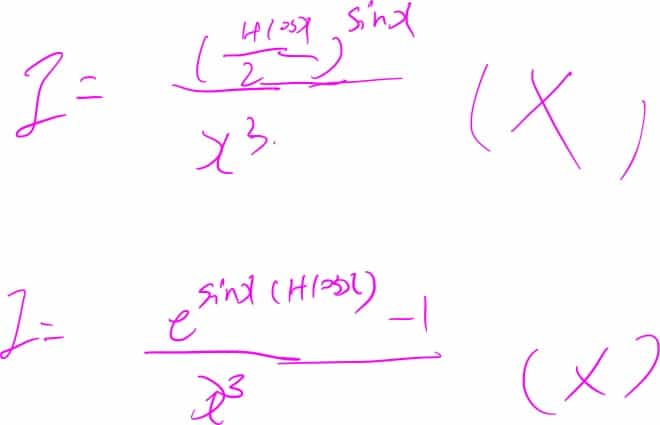 I = ((1+cosx)/2)^sinx / x^3. (X)
I = e^sinx(1+cosx) - 1 / x^3 (X)